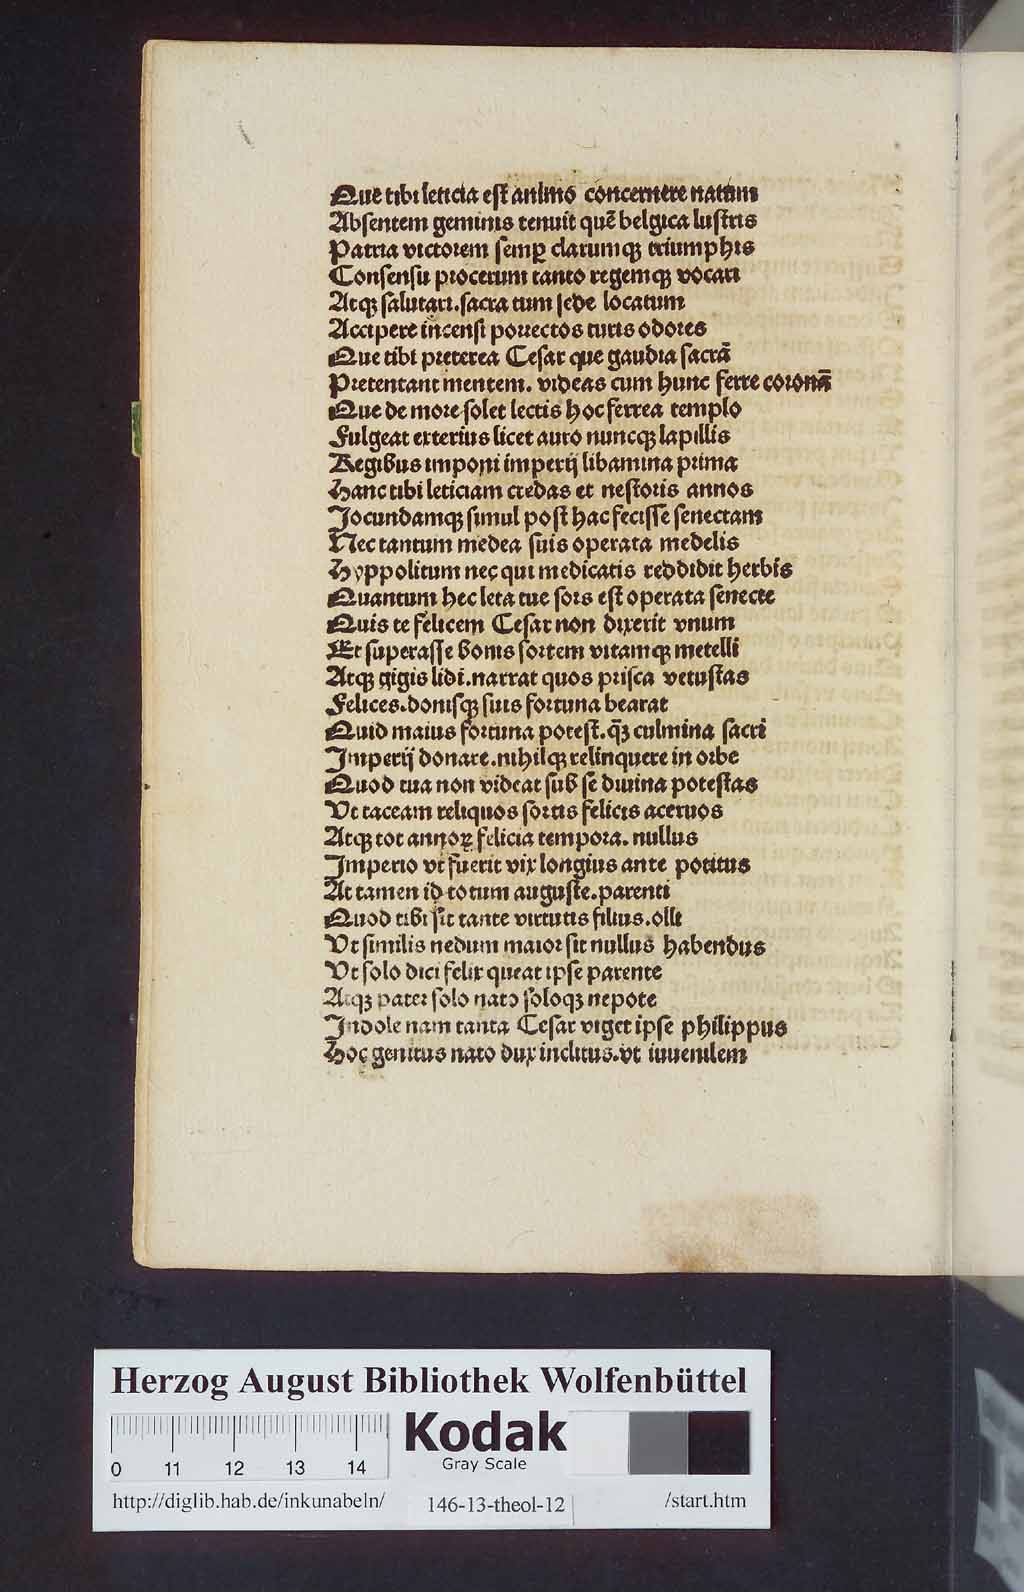 Que tibi leticia est animo concernere natum
Absentem geminis tenuit quē belgica lustris
Patria victorem semꝑ clarumqꝫ triumphis
Consensu procerum tanto regemqꝫ vocari
Atqꝫ salutari.sacra tum sede locatum
Accipere incensi porrectos turis odores
Que tibi preterea Cesar que gaudia sacrā
Pretentant mentem. videas cum hunc ferre coronā
Que de more solet lectis hoc ferrea templo
Fulgeat exterius licet auro nuncqꝫ lapillis
Regibus imponi imperij libamina prima
Hanc tibi leticiam credas et nestoris annos
Jocundamqꝫ simul post hac fecisse senectam
Nec tantum medea suis operata medelis
Hyppolitum nec qui medicatis reddidit herbis
Quantum hec leta tue sors est operata senecte
Quis te felicem Cesar non dixerit vnum
Et superasse bonis sortem vitamqꝫ metelli
Atqꝫ gigis lidi.narrat quos prisca vetustas
Felices.donisqꝫ suis fortuna bearat
Quid maius fortuna potest.q̄ꝫ culmina sacri
Imperij donare.nihilqꝫ relinquere in orbe
Quod tua non videat sub se diuina potestas
Vt taceam reliquos sortis felicis aceruos
Atqꝫ tot annoꝝ felicia tempora. nullus
Imperio vt fuerit vix longius ante potitus
At tamen id totum auguste.parenti
Quod tibi sit tante virtutis filius.olli
Vt similis nedum maior sit nullus habendus
Vt solo dici felix queat ipse parente
Atqꝫ pater solo nato soloqꝫ nepote
Indole nam tanta Cesar viget ipse philippus
Hoc genitus nato dux inclitus.vt iuuenilem
Herzog August Bibliothek Wolfenbüttel
Kodak
Gray Scale
0 11 12 13 14
http://diglib.hab.de/inkunabeln/ 146-13-theol-12 /start.htm